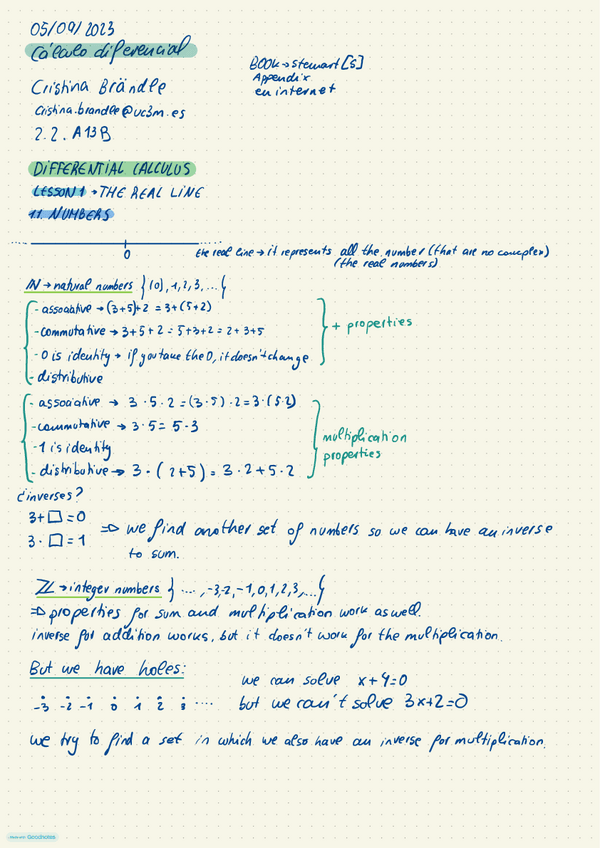 05/09/2023
Cálculo diferencial
Cristina Brändle
cristina.brandle@uc3m.es
2.2. A13B
BOOK → stewart [5]
Appendix
en internet
DIFFERENTIAL CALCULUS
LESSON 1 → THE REAL LINE
1.1. NUMBERS
0
the real line → it represents all the number (that are no complex)
(the real numbers)
IN → natural numbers {(0), 1, 2, 3, ...}
- associative → (3+5)+2 = 3+(5+2)
- commutative → 3+5+2 = 5+3+2 = 2+3+5
- 0 is identity → if you take the 0, it doesn't change
- distributive
+ properties
- associative → 3 · 5 · 2 = (3 · 5) · 2 = 3 · (5 · 2)
- commutative → 3 · 5 = 5 · 3
- 1 is identity
- distributive → 3 · (2+5) = 3 · 2 + 5 · 2
multiplication
properties
¿inverses?
3 + □ = 0
3 · □ = 1
⇒ we find another set of numbers so we can have an inverse
to sum.
ℤ → integer numbers {..., -3, -2, -1, 0, 1, 2, 3, ...}
⇒ properties for sum and multiplication work as well.
inverse for addition works, but it doesn't work for the multiplication.
But we have holes:
-3 -2 -1 0 1 2 3 ....
we can solve x+4=0
but we can't solve 3x+2=0
we try to find a set in which we also have an inverse for multiplication.
Made with Goodnotes